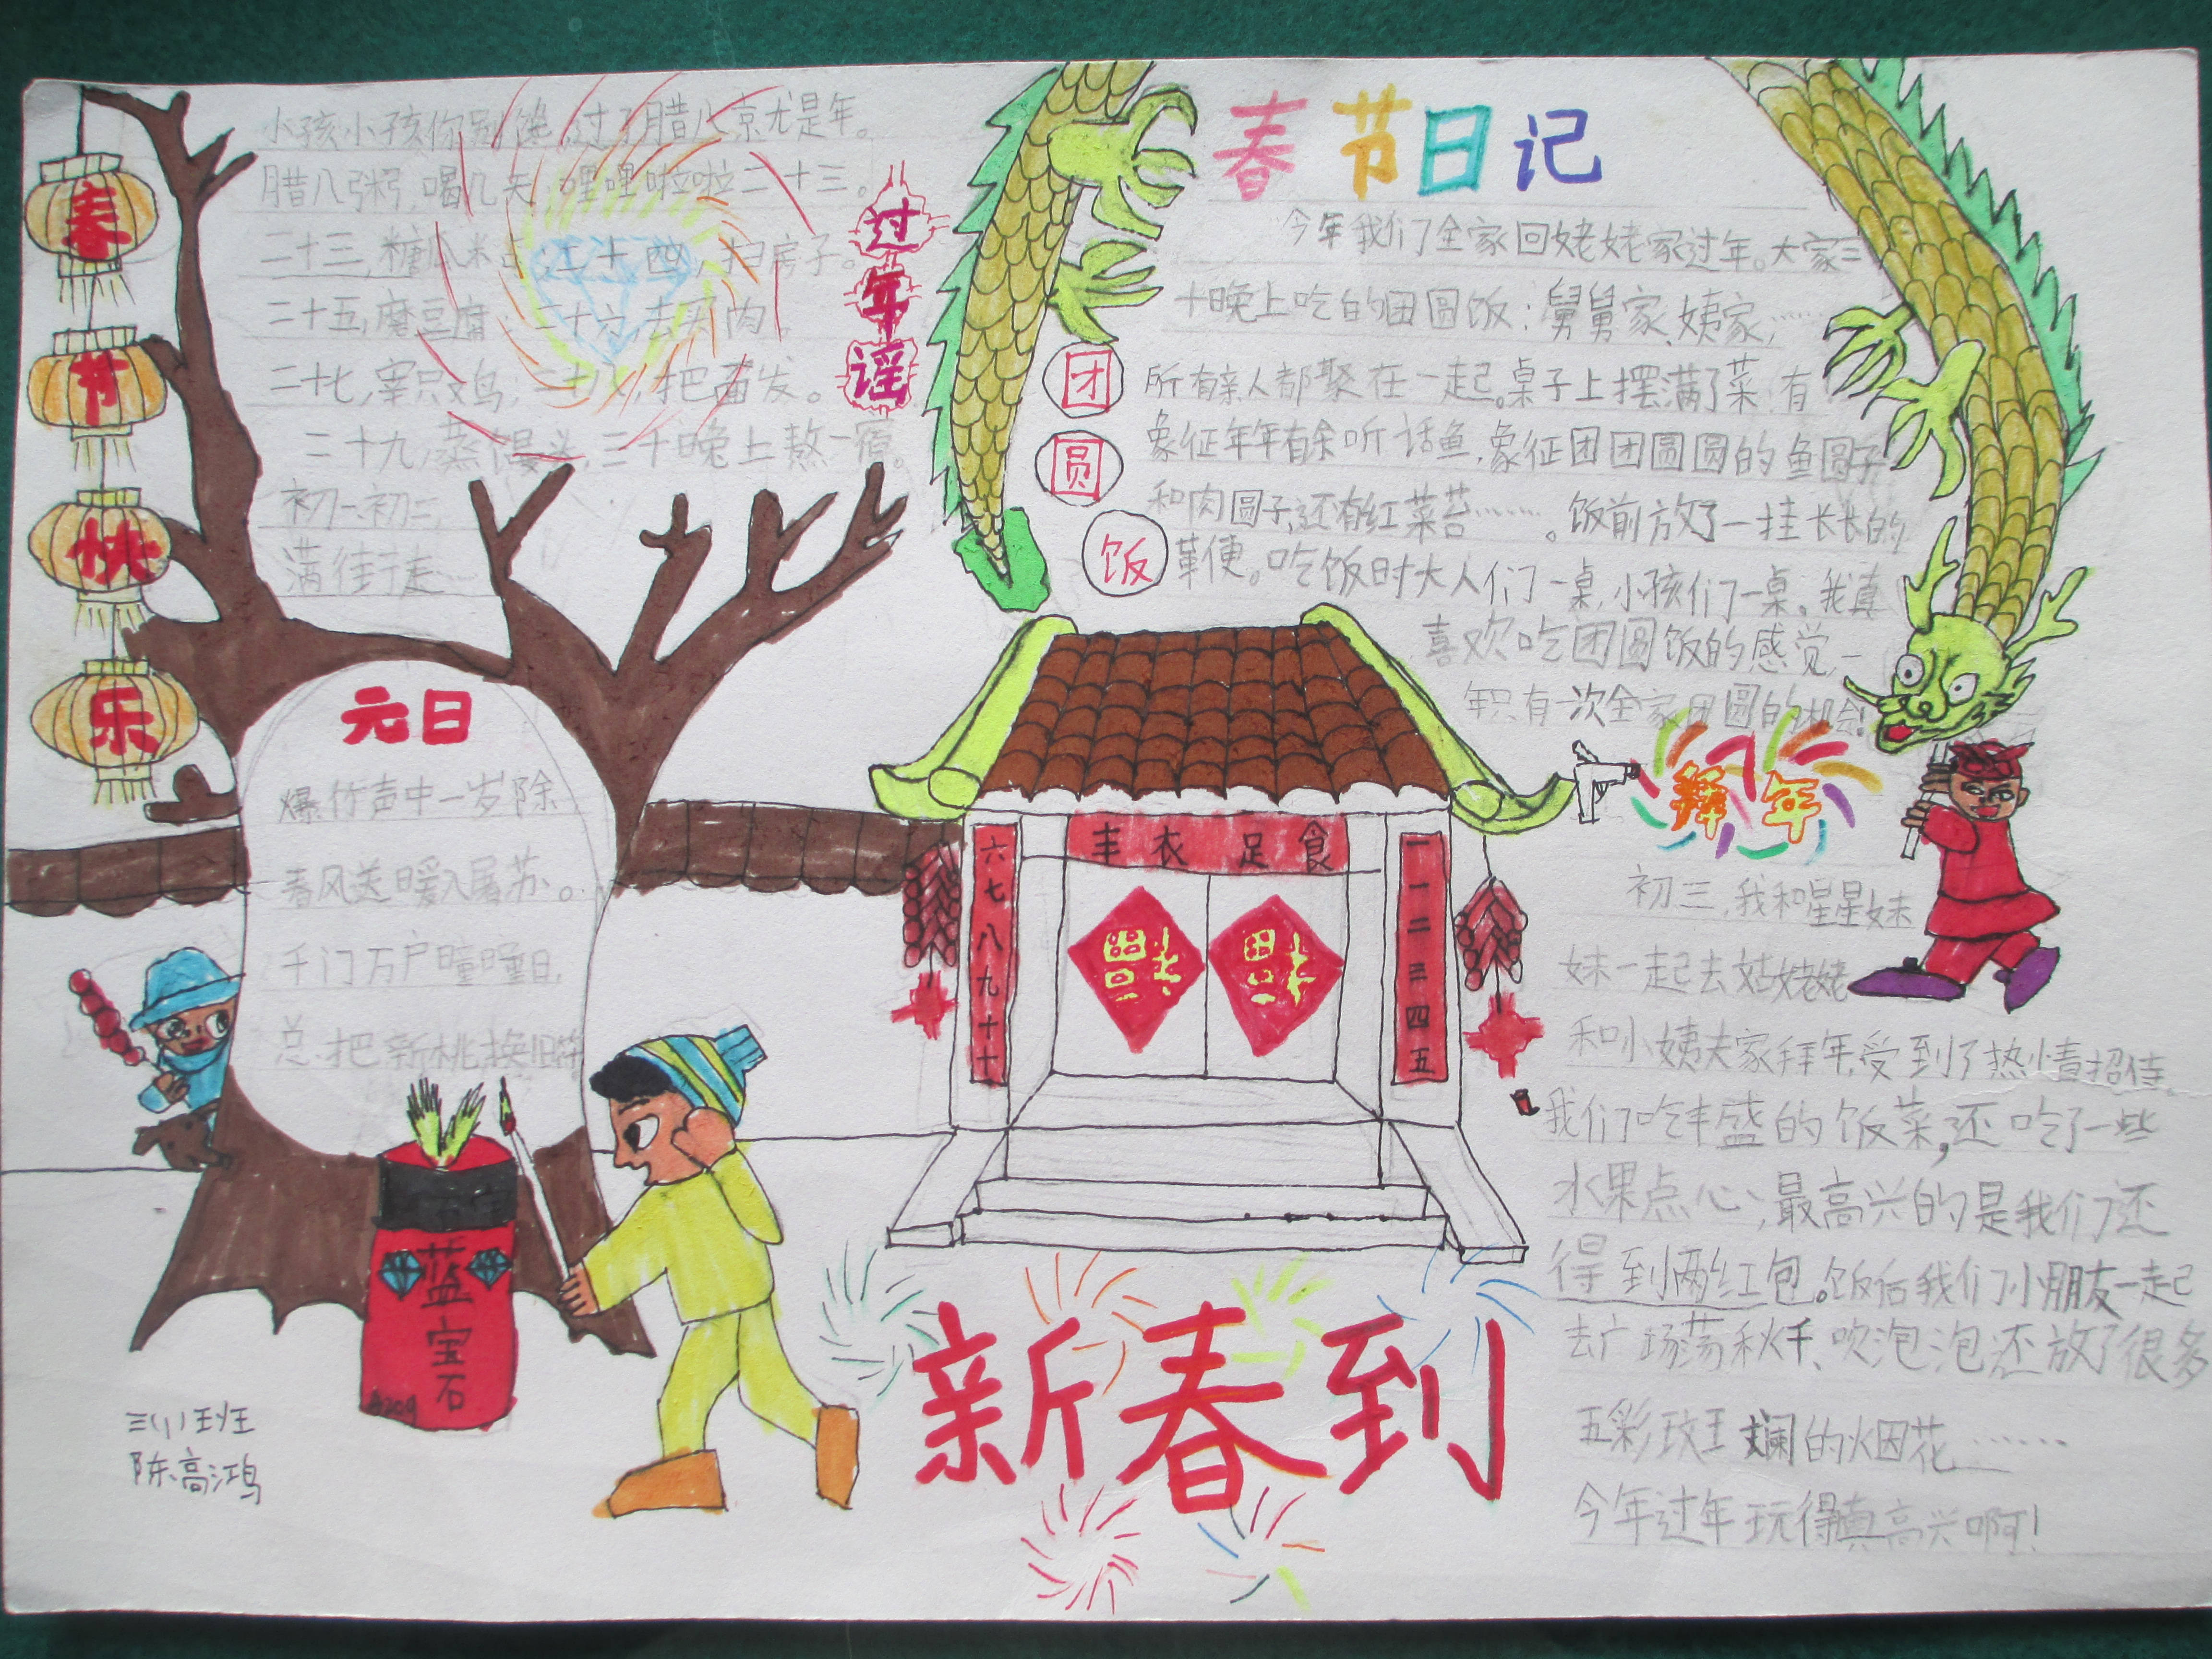 春节快乐
小孩小孩你别馋,过了腊八京尤是年。
腊八粥,喝几天,哩哩啦啦二十三。
二十三,糖瓜米占,二十四,扫房子。
二十五,磨豆腐,二十六,去买肉。
二十七,宰只鸡,二十八,把面发。
二十九,蒸馒头,三十晚上熬一宿。
初一、初二,
满街走……
过年谣
元日
爆竹声中一岁除
春风送暖入屠苏。
千门万户曈曈日,
总把新桃换旧符
蓝宝石
三(1)班
陈高鸿
六七八九十
丰衣足食
一二三四五
福
福
新春到
春节日记
团圆饭
今年我们了全家回姥姥家过年。大家三
十晚上吃的团圆饭:舅舅家、姨家,……
所有亲人都聚在一起。桌子上摆满了菜,有
象征年年有余听话鱼,象征团团圆圆的鱼圆子
和肉圆子,还有红菜苔……。饭前放了一挂长长的
革便。吃饭时大人们一桌,小孩们一桌。我真
喜欢吃团圆饭的感觉,一
年只有一次全家团圆的机会!
拜年
初三,我和星星妹
妹一起去姑姥姥
和小姨夫家拜年,受到了热情招待。
我们吃丰盛的饭菜,还吃了一些
水果点心,最高兴的是我们还
得到两红包。饭后我们小朋友一起
去广场荡秋千、吹泡泡还放了很多
五彩斑斓的烟花……
今年过年玩得真高兴啊!